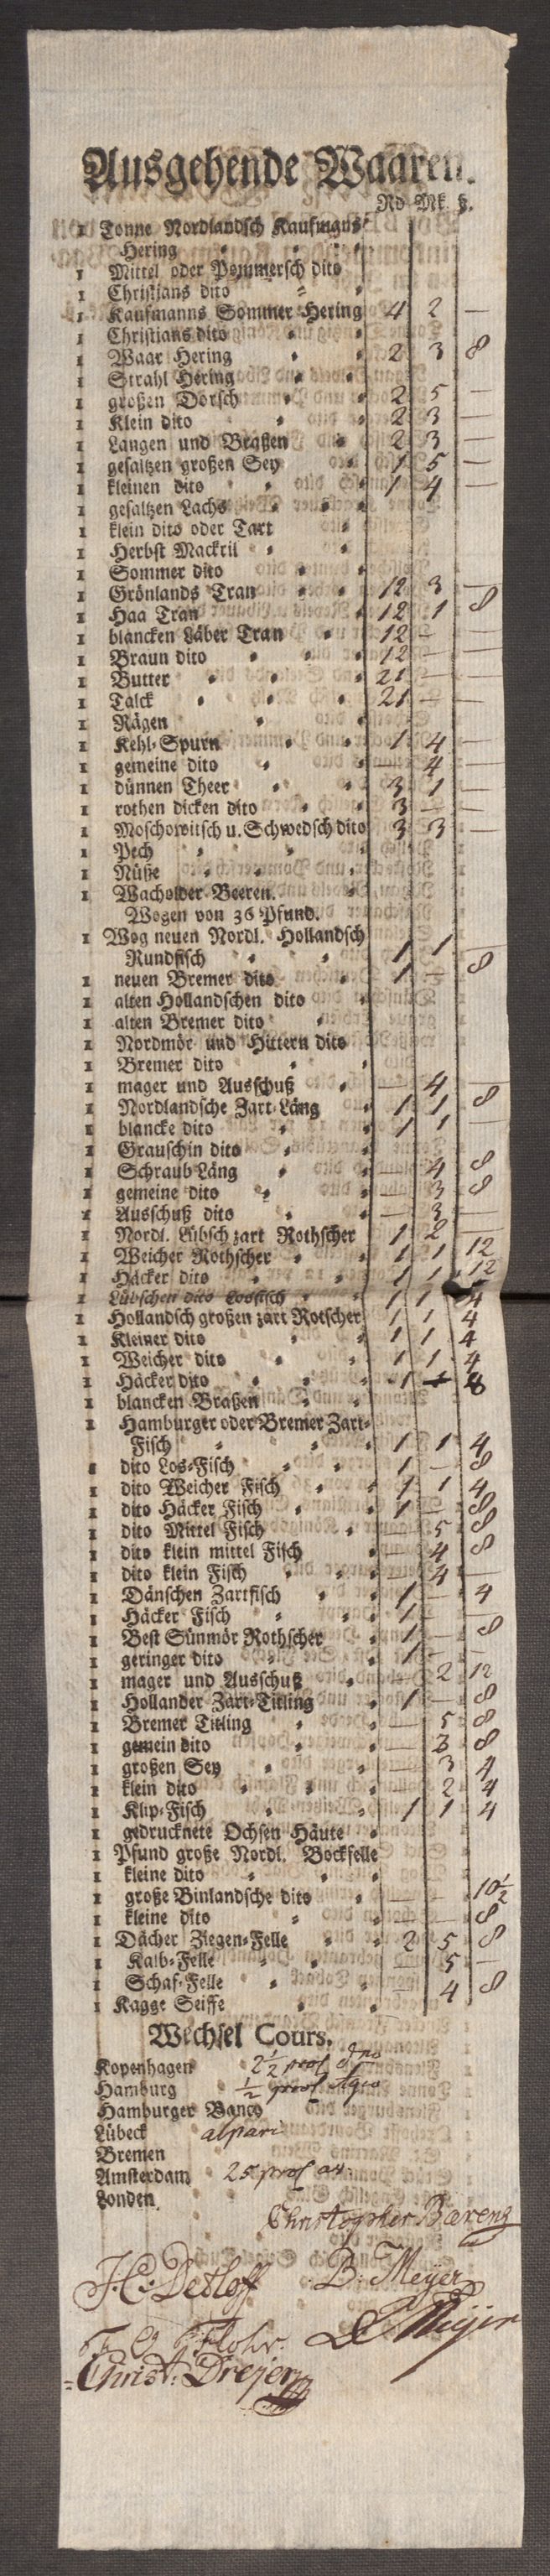 Ausgehende Waaren.
Rd Mk. ß.
1 Tonne Nordlandsch Kaufmans
Hering
1 Mittel oder Pommersch dito
1 Christians dito
1 Kaufmanns Sommer Hering 4 2 —
1 Christians dito
1 Waar Hering 2 3 8
1 Strahl Hering
1 großen Dorsch 2 5 —
1 Klein dito 2 3 —
1 Langen und Braßen 2 3 —
1 gesaltzen großen Sey 1 5 —
1 kleinen dito 1 4 —
1 gesaltzen Lachs
1 klein dito oder Tart
1 Herbst Mackril
1 Sommer dito
1 Grönlands Tran 12 3 —
1 Haa Tran 12 1 8
1 blancken Läber Tran 12 — —
1 Braun dito 12 — —
1 Butter 21 — —
1 Talck 21 — —
1 Rägen
1 Kehl-Spurn 1 4 —
1 gemeine dito — 4 —
1 dünnen Theer 3 1 —
1 rothen dicken dito 3 — —
1 Moschowitsch u. Schwedsch dito 3 3 —
1 Pech
1 Nüße
1 Wacholder Beeren.
Wogen von 36 Pfund.
1 Wog neuen Nordl. Hollandsch
Rundfisch 1 1 —
1 neuen Bremer dito 1 — 8
1 alten Hollandschen dito
1 alten Bremer dito
1 Nordmör und Hittern dito
1 Bremer dito
1 mager und Ausschuß — 4 —
1 Nordlandsche Zart-Läng 1 1 8
1 blancke dito 1 1 —
1 Grauschin dito
1 Schraub Läng — 4 8
1 gemeine dito — 3 8
1 Ausschuß dito — 3 —
1 Nordl. Lübsch zart Rothscher 1 2 —
1 Weicher Rothscher 1 1 12
1 Häcker dito 1 1 12
1 Lübschen dito Losfisch 1 1 4
1 Hollandsch großen zart Rotscher 1 1 4
1 Kleiner dito 1 1 4
1 Weicher dito 1 1 4
1 Häcker dito 1 — 8
1 blancken Braßen
1 Hamburger oder Bremer Zart-
Fisch 1 1 4
1 dito Los-Fisch 1 — 8
1 dito Weicher Fisch 1 1 4
1 dito Häcker Fisch 1 — 8
1 dito Mittel Fisch — 5 8
1 dito klein mittel Fisch — 4 8
1 dito klein Fisch — 4 —
1 Dänschen Zartfisch 1 — 4
1 Häcker Fisch 1 —
1 Best Sünmör Rothscher 1 — 8
1 geringer dito 1 —
1 mager und Ausschuß — 2 12
1 Hollander Zart-Titling 1 — 8
1 Bremer Titling — 5 8
1 gemein dito — 3 8
1 großen Sey — 3 4
1 klein dito 2 4
1 Klip-Fisch 1 1 4
1 gedrucknete Ochsen Häute
1 Pfund große Nordl. Bockfelle
1 kleine dito
1 große Binlandsche dito — — 10½
1 kleine dito — — 8
1 Dächer Ziegen-Felle 2 5 8
1 Kalb-Felle — 5 —
1 Schaf-Felle — 4 8
1 Kagge Seiffe
Wechsel Cours.
Kopenhagen 2½
Hamburg ½ Agio
Hamburger Banco
Lübeck alpari
Bremen
Amsterdam 25
Londen
Christopher Barens
H: Detloff B: Meyer
Flohr. Meijer
Christ: Drejer